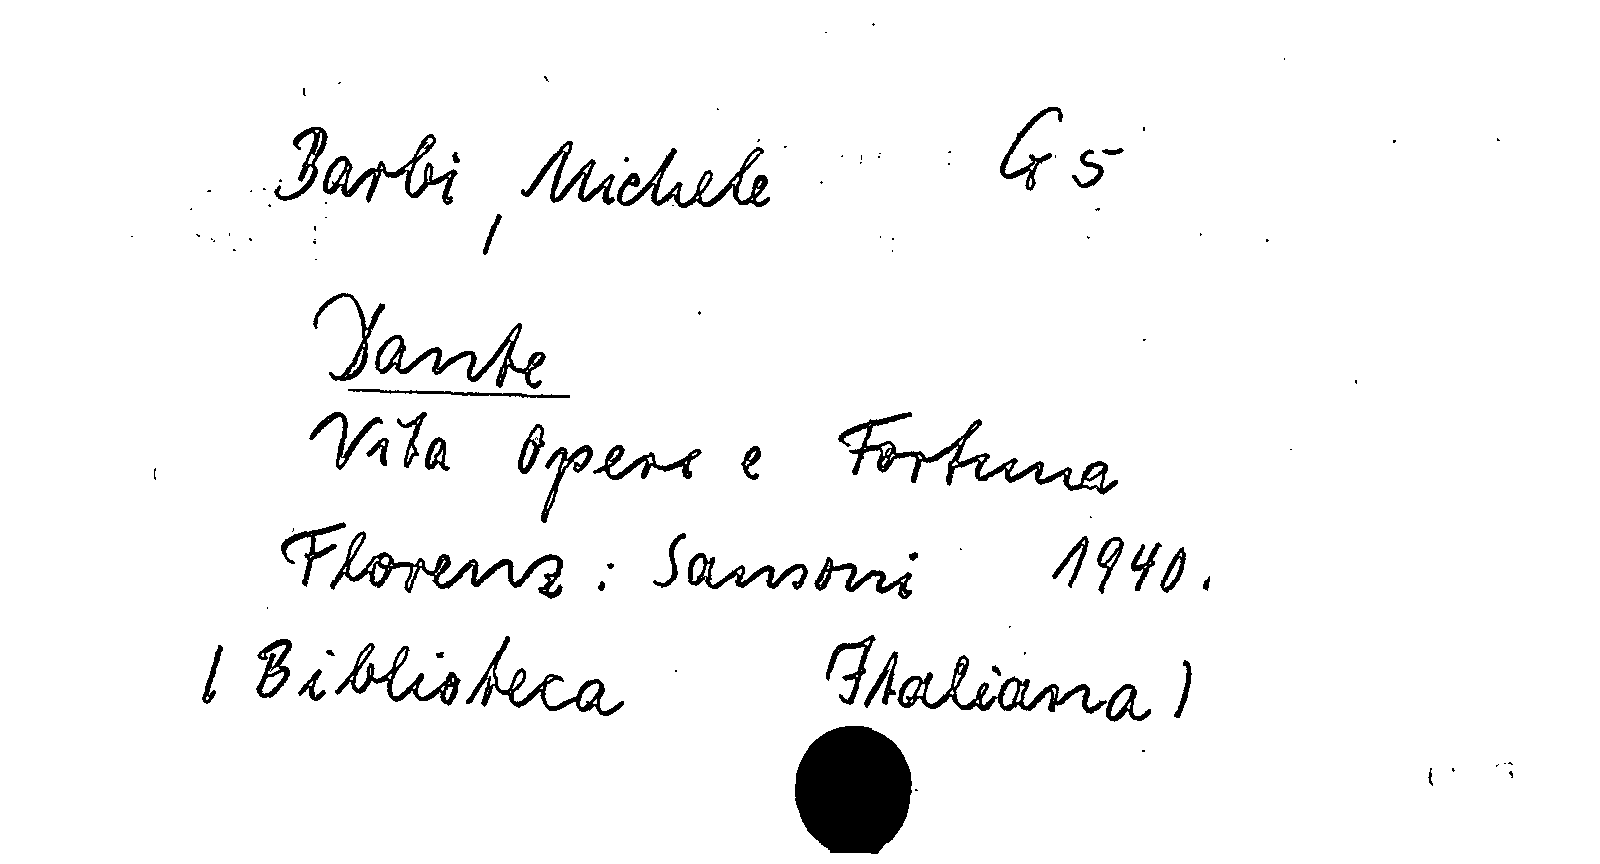 Barbi, Michele G5
Dante
Vita opere e Fortuna
Florenz: Sansoni 1940.
(Biblioteca Italiana)